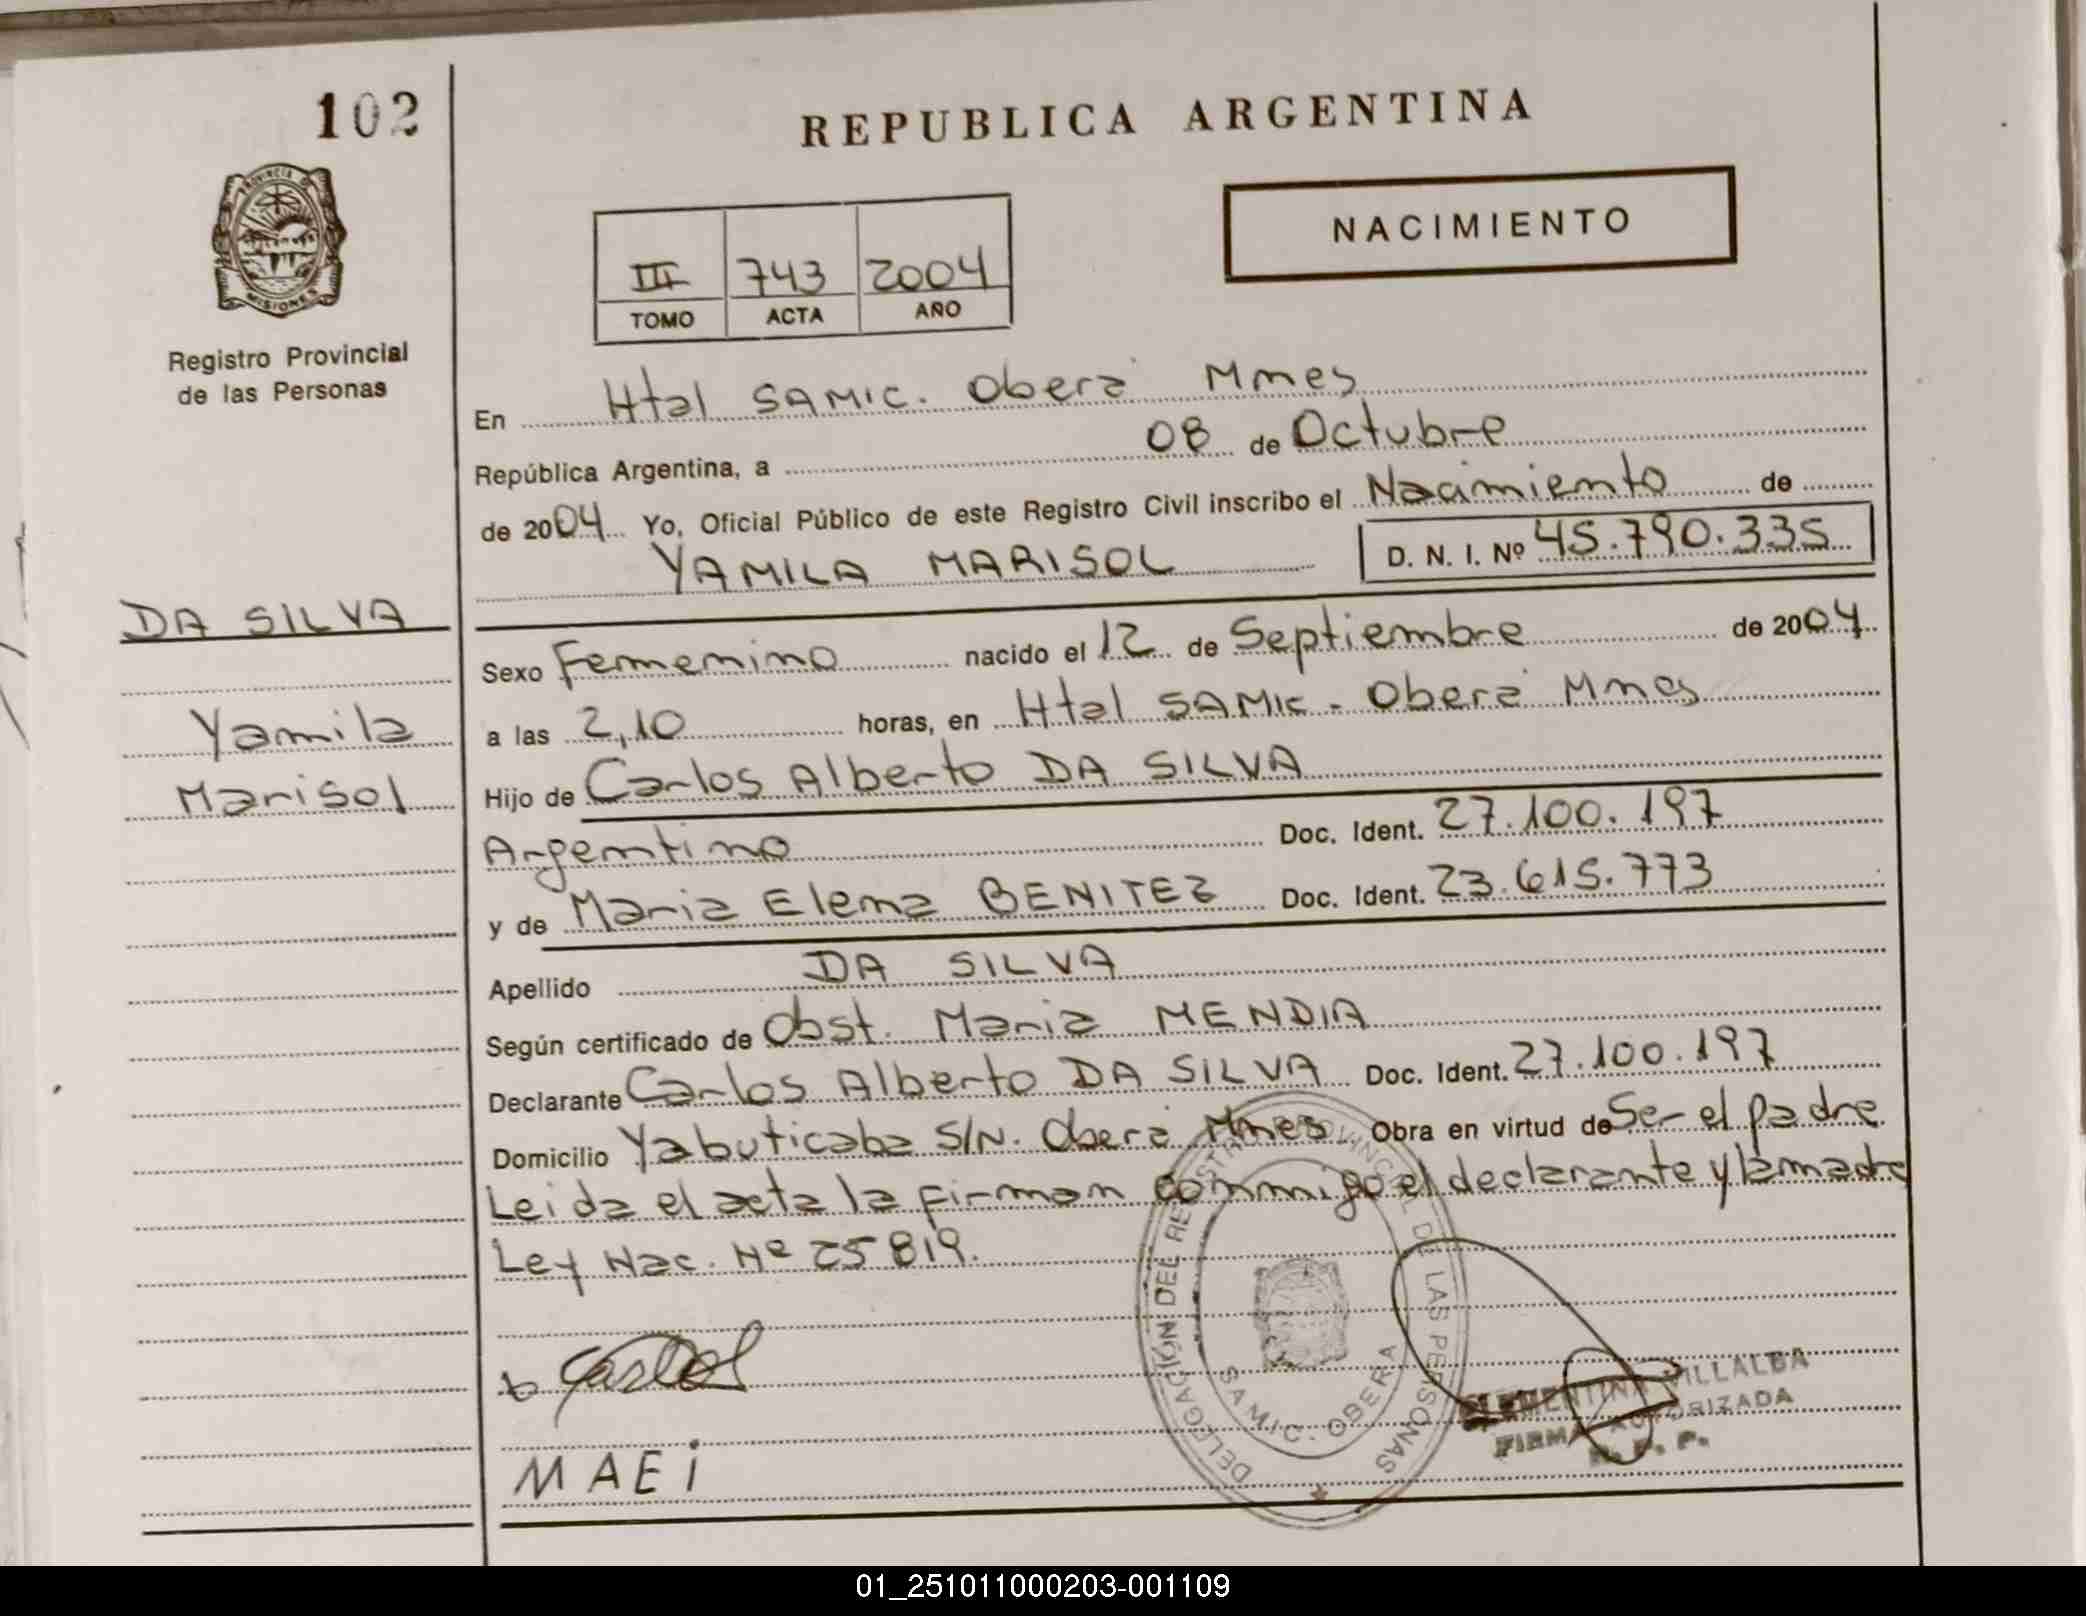 102
REPUBLICA ARGENTINA
PROVINCIA DE
MISIONES
NACIMIENTO
III 743 2004
TOMO ACTA AÑO
Registro Provincial
de las Personas
En Htal SAMIC. Oberá Mnes
República Argentina, a 08 de Octubre
de 2004 Yo, Oficial Público de este Registro Civil inscribo el Nacimiento de
YAMILA MARISOL D. N. I. Nº 45.790.335
DA SILVA
Yamila
Marisol
Sexo Femenino nacido el 12 de Septiembre de 2004
a las 2,10 horas, en Htal SAMIC - Oberá Mnes
Hijo de Carlos Alberto DA SILVA
Argentino Doc. Ident. 27.100.197
y de Maria Elena BENITEZ Doc. Ident. 23.615.773
Apellido DA SILVA
Según certificado de Obst. Maria MENDIA
Declarante Carlos Alberto DA SILVA Doc. Ident. 27.100.197
Domicilio Yabuticaba S/N. Oberá Mnes Obra en virtud de Ser el padre
Leida el acta la firman conmigo el declarante y la madre
Ley Nac. Nº 25819.
DELEGACIÓN DEL REGISTRO PROVINCIAL DE LAS PERSONAS
SAMIC. OBERA
CLEMENTINA VILLALBA
FIRMA AUTORIZADA
R. P. P.
MAEi
01_251011000203-001109